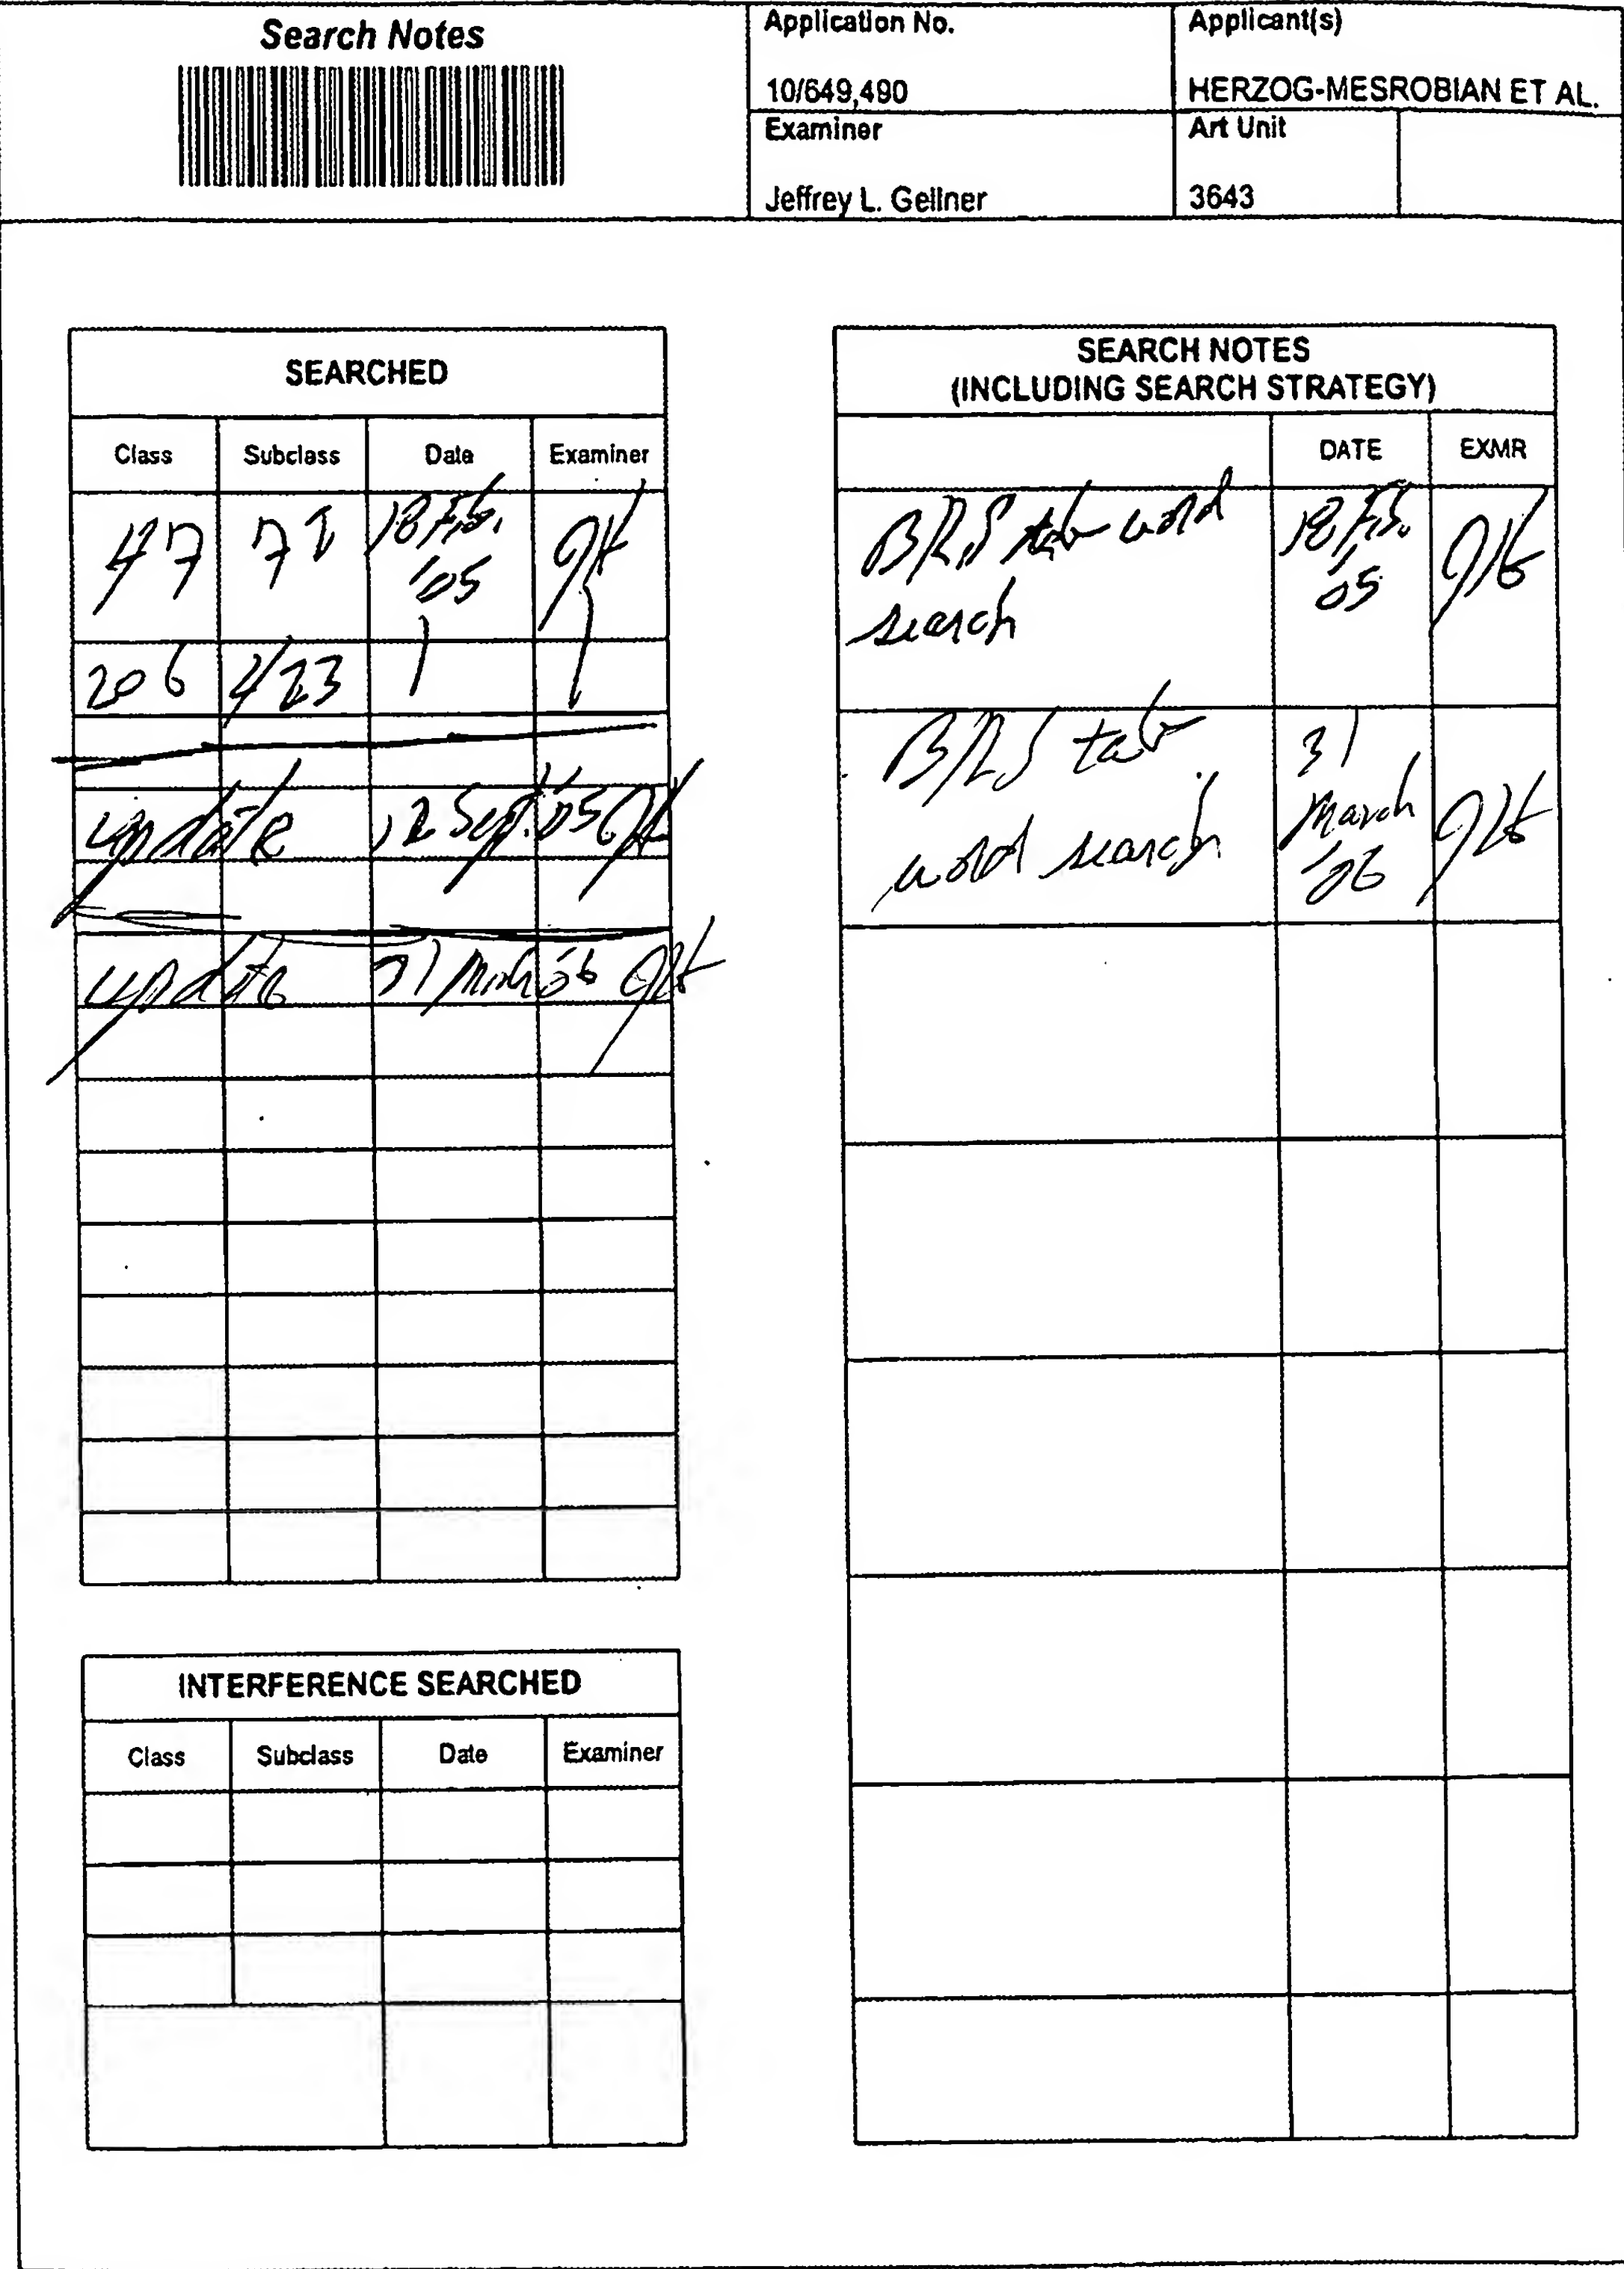 Search Notes
Application No.
10/649,490
Applicant(s)
HERZOG-MESROBIAN ET AL.
Examiner
Jeffrey L. Gellner
Art Unit
3643
SEARCHED
Class Subclass Date Examiner
47 72 18 Feb. '05
206 423
update 12 Sept. '05
update 31 March 06
INTERFERENCE SEARCHED
Class Subclass Date Examiner
SEARCH NOTES
(INCLUDING SEARCH STRATEGY)
DATE EXMR
BRS tab word 18 Feb.
search '05
BRS tab 31
word search March
'06